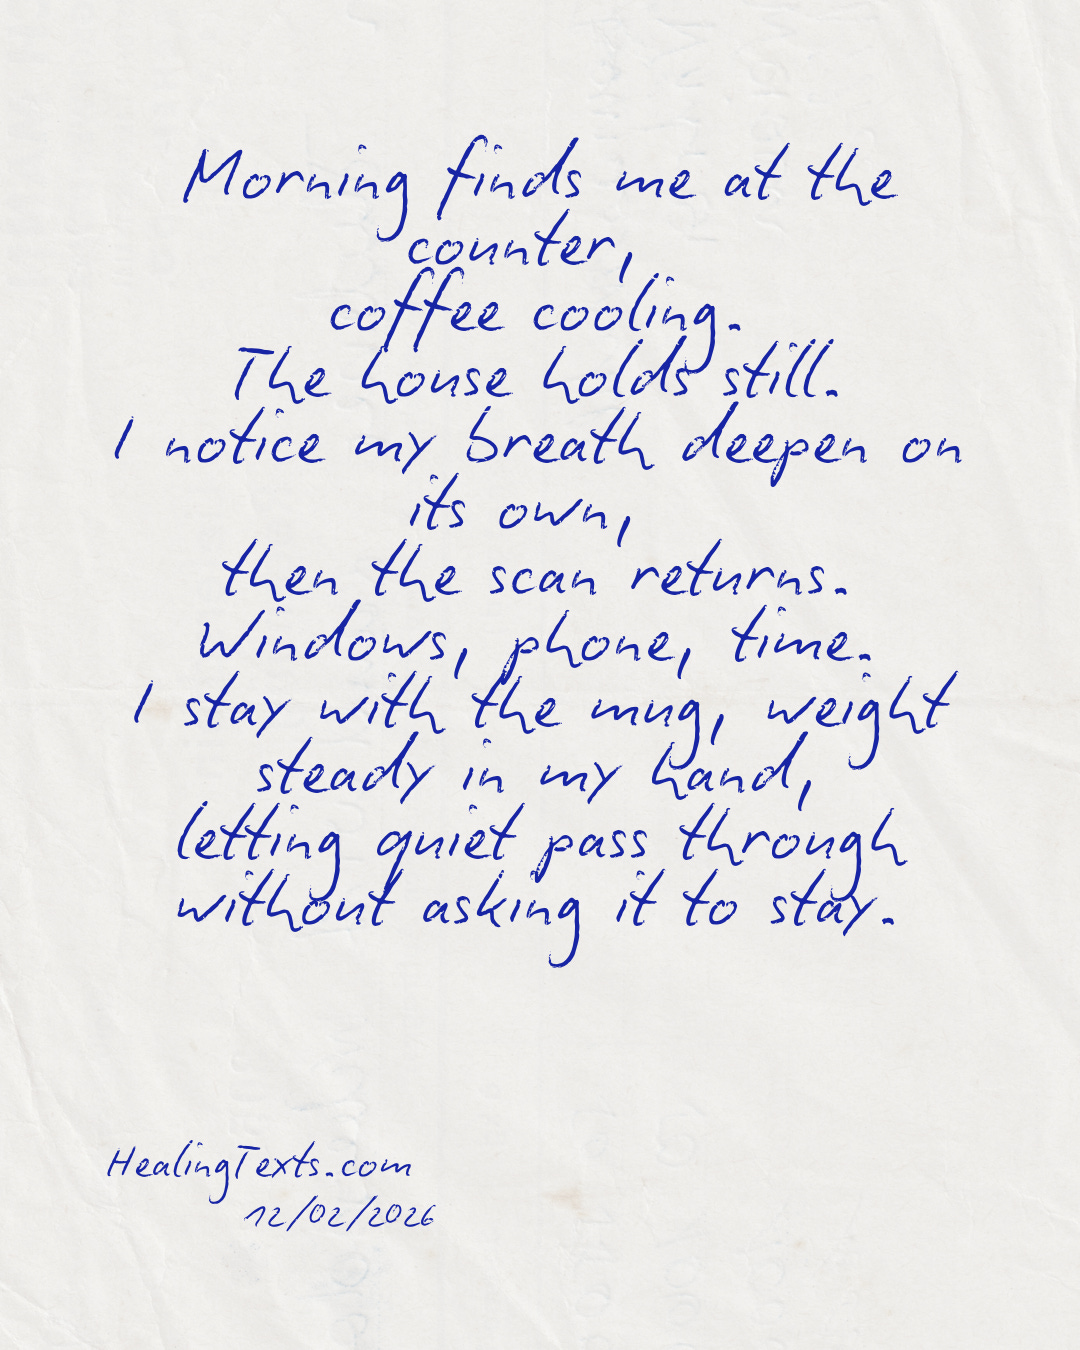 Morning finds me at the
counter,
coffee cooling.
The house holds still.
I notice my breath deepen on
its own,
then the scan returns.
Windows, phone, time.
I stay with the mug, weight
steady in my hand,
letting quiet pass through
without asking it to stay.
HealingTexts.com
12/02/2026